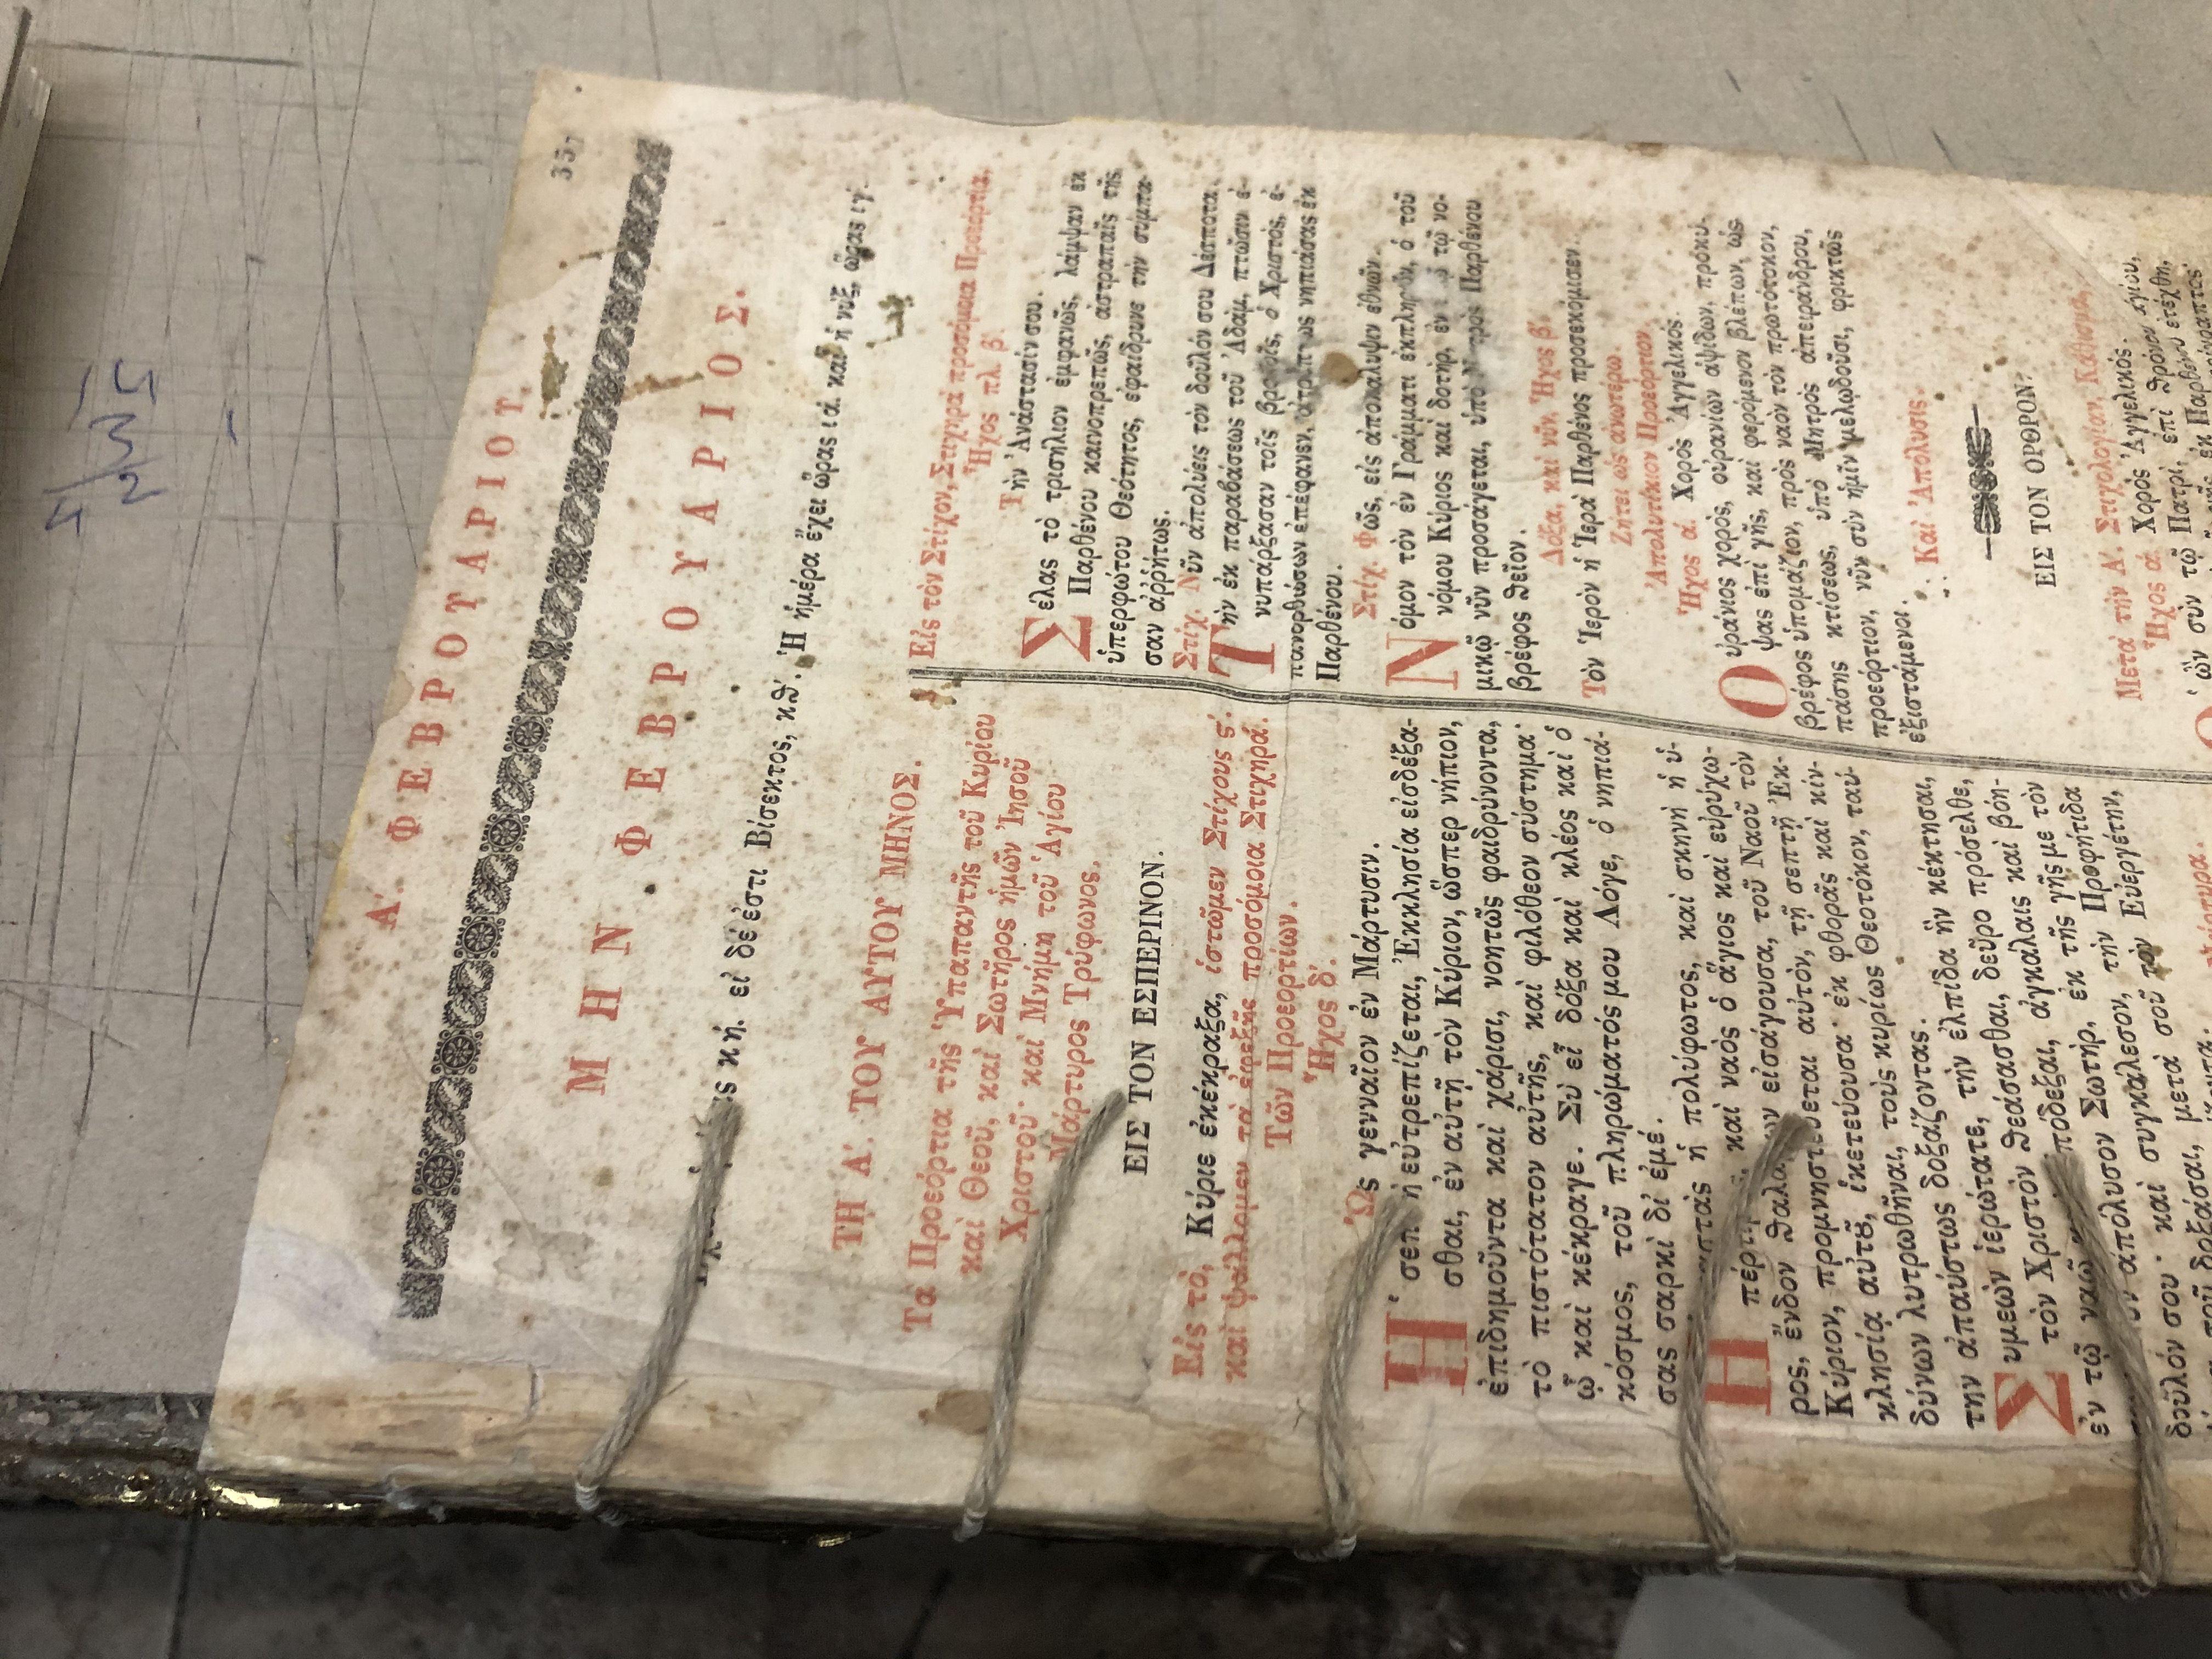 Α'. ΦΕΒΡΟΥΑΡΙΟΥ.
ΜΗΝ ΦΕΒΡΟΥΑΡΙΟΣ.
κή. εἰ δέ ἐστι Βίσεκτος, κθ'. Ἡ ἡμέρα ἔχει ὥρας ιά. καὶ ἡ νὺξ, ὥρας ιγ'.
ΤΗ Α'. ΤΟΥ ΑΥΤΟΥ ΜΗΝΟΣ.
Τὰ Προεόρτια τῆς Ὑπαπαντῆς τοῦ Κυρίου
καὶ Θεοῦ, καὶ Σωτῆρος ἡμῶν Ἰησοῦ
Χριστοῦ· καὶ Μνήμη τοῦ Ἁγίου
Μάρτυρος Τρύφωνος.
ΕΙΣ ΤΟΝ ΕΣΠΕΡΙΝΟΝ.
Εἰς τὸ, Κύριε ἐκέκραξα, ἱστῶμεν Στίχους ϛ'.
καὶ ψάλλομεν τὰ ἐφεξῆς προσόμοια Στιχηρά.
Τῶν Προεορτίων.
Ἦχος δ'.
Ὡς γενναῖον ἐν Μάρτυσιν.
Ἡ σεπτὴ εὐτρεπίζεται, Ἐκκλησία εἰσδέξα-
σθαι, ἐν αὐτῇ τὸν Κύριον, ὥσπερ νήπιον,
ἐπιδημοῦντα καὶ χάρισι, νοητῶς φαιδρύνοντα,
τὸ πιστότατον αὐτῆς, καὶ φιλόθεον σύστημα·
ᾧ καὶ κέκραγε. Σὺ εἶ δόξα καὶ κλέος καὶ ὁ
κόσμος, τοῦ πληρώματός μου Λόγε, ὁ νηπιά-
σας σαρκὶ δι' ἐμέ.
Ἡ πολύφωτος, καὶ σκηνὴ ἡ ὑ-
πέρτιμος, καὶ ναὸς ὁ ἅγιος καὶ εὐρύχω-
ρος, ἔνδον θαλάμων εἰσάγουσα, τοῦ Ναοῦ τὸν
Κύριον, προμνηστεύεται αὐτὸν, τῇ σεπτῇ Ἐκ-
κλησίᾳ αὐτȣ͂, ἱκετεύουσα· ἐκ φθορᾶς καὶ κίν-
δύνων λυτρωθῆναι, τοὺς κυρίως Θεοτόκον, ταύ-
την ἀπαύστως δοξάζοντας.
Συμεὼν ἱερώτατε, τὴν ἐλπίδα ἣν κέκτησαι,
τὸν Χριστὸν θεάσασθαι, δεῦρο πρόσελθε,
ἐν τῷ ναῷ ὑπόδεξαι, ἀγκάλαις καὶ βόη-
ἀπόλυσον Σωτὴρ, ἐκ τῆς γῆς με τὸν
δοῦλόν σου· καὶ συγκάλεσον, τὴν Προφήτιδα
δοξάσαι, μετὰ σοῦ τὸν Εὐεργέτην,
Εἰς τὸν Στίχον, Στιχηρὰ προσόμοια Προεόρτια.
Ἦχος πλ. β'.
Τὴν Ἀνάστασίν σου.
Σέλας τὸ τρισήλιον ἐμφανῶς, λάμψαν ἐκ
Παρθένου καινοπρεπῶς, ἀστραπαῖς τῆς
ὑπερφώτου Θεότητος, ἐφαίδρυνε τὴν σύμπα-
σαν ἀῤῥήτως.
Στίχ. Νῦν ἀπολύεις τὸν δοῦλόν σου Δέσποτα.
Τὴν ἐκ παραβάσεως τοῦ Ἀδὰμ, πτῶσιν ἐ-
νυπάρξασαν τοῖς βροτοῖς, ὁ Χριστὸς, ἐ-
πανορθώσων ἐπέφανεν, ἀτρέπτως νηπιάσας ἐκ
Παρθένου.
Στίχ. Φῶς, εἰς ἀποκάλυψιν ἐθνῶν.
Νόμον τὸν ἐν Γράμματι ἐκπληρῶν, ὁ τοῦ
νόμου Κύριος καὶ δοτὴρ, ἐν τῷ νο-
μικῷ νῦν προσάγεται, ὑπὸ Μητρὸς Παρθένου
βρέφος θεῖον.
Δόξα, καὶ νῦν, Ἦχος β'.
Τὸν Ἱερὸν ἡ Ἱερὰ Παρθένος προσεκόμισεν.
Ζήτει ὡς ἀνωτέρω.
Ἀπολυτίκιον Προεόρτιον.
Ἦχος ά. Χορὸς Ἀγγελικός.
Οὐράνιος χορὸς, οὐρανίων ἁψίδων, προκύ-
ψας ἐπὶ γῆς, καὶ φερόμενον βλέπων, ὡς
βρέφος ὑπομάζιον, πρὸς ναὸν τὸν πρωτότοκον,
πάσης κτίσεως, ὑπὸ Μητρὸς ἀπειράνδρου,
προεόρτιον, νῦν σὺν ἡμῖν μελῳδοῦσι, φρικτῶς
ἐξιστάμενοι.
Καὶ Ἀπόλυσις.
ΕΙΣ ΤΟΝ ΟΡΘΡΟΝ.
Μετὰ τὴν Α'. Στιχολογίαν, Κάθισμα,
Ἦχος ά. Χορὸς Ἀγγελικός.
Ὁ ὢν σὺν τῷ Πατρὶ, ἐπὶ θρόνου ἁγίου,
ἐκ Παρθένου ἐτέχθη,